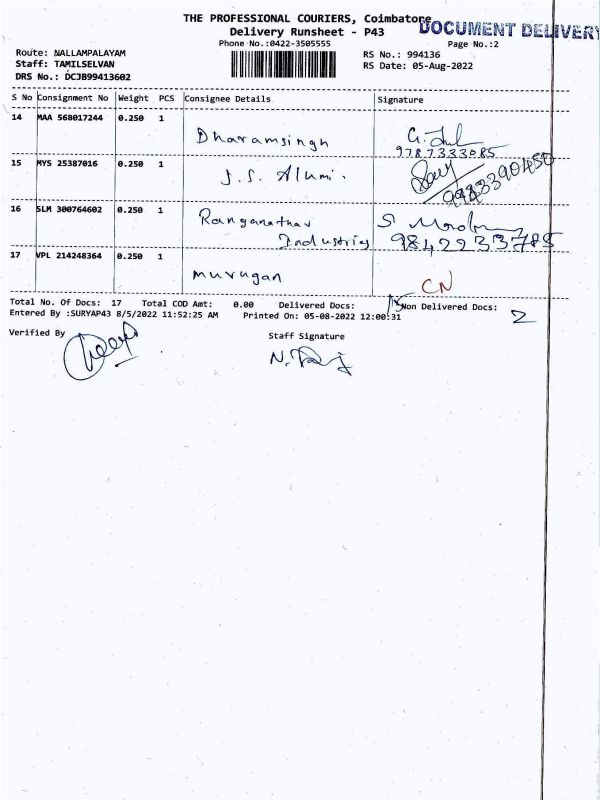 THE PROFESSIONAL COURIERS, Coimbatore
DOCUMENT DELIVERY
Delivery Runsheet - P43
Phone No.:0422-3505555
Page No.:2
Route: NALLAMPALAYAM
RS No.: 994136
Staff: TAMILSELVAN
RS Date: 05-Aug-2022
DRS No.: DCJB99413602
S No Consignment No Weight PCS Consignee Details Signature
14 MAA 568017244 0.250 1
Dharamsingh
9787333085
15 MYS 25387016 0.250 1
J.S. Alumi.
9983390450
16 SLM 300764602 0.250 1
Ranganathar
Industries 9842233785
17 VPL 214248364 0.250 1
murugan
CN
Total No. Of Docs: 17 Total COD Amt: 0.00 Delivered Docs: 15 Non Delivered Docs: 2
Entered By :SURYAP43 8/5/2022 11:52:25 AM Printed On: 05-08-2022 12:00:31
Verified By Staff Signature